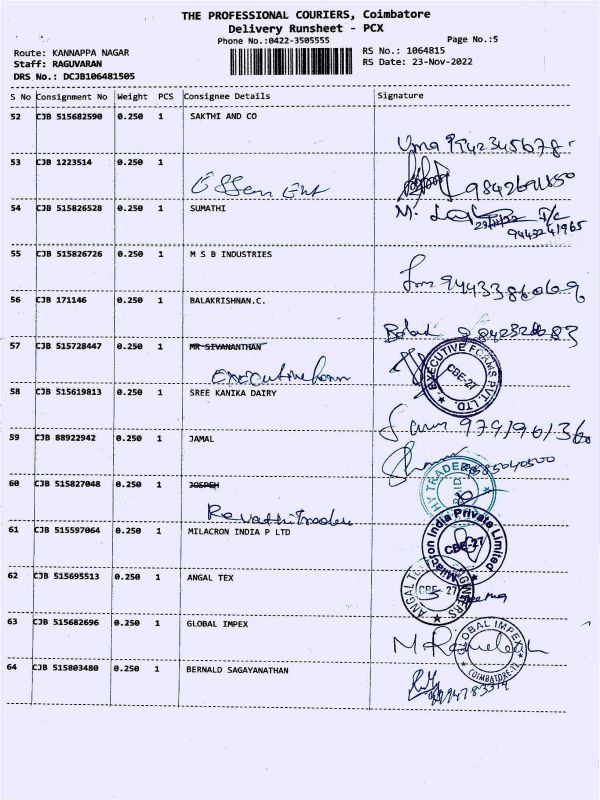 THE PROFESSIONAL COURIERS, Coimbatore
Delivery Runsheet - PCX
Phone No.:0422-3505555
Page No.:5
Route: KANNAPPA NAGAR
RS No.: 1064815
Staff: RAGUVARAN
RS Date: 23-Nov-2022
DRS No.: DCJB106481505
S No Consignment No Weight PCS Consignee Details Signature
52 CJB 515682590 0.250 1 SAKTHI AND CO
Uma 9942345678
53 CJB 1223514 0.250 1
54 CJB 515826528 0.250 1 SUMATHI
9443241965
55 CJB 515826726 0.250 1 M S B INDUSTRIES
56 CJB 171146 0.250 1 BALAKRISHNAN.C.
57 CJB 515728447 0.250 1 MR SIVANANTHAN
EXECUTIVE FORMS PVT. LTD.
CBE-27
58 CJB 515619813 0.250 1 SREE KANIKA DAIRY
59 CJB 88922942 0.250 1 JAMAL
60 CJB 515827048 0.250 1 JOSPEH
Revathi Traders
61 CJB 515597064 0.250 1 MILACRON INDIA P LTD
Milacron India Private Limited
CBE-27
62 CJB 515695513 0.250 1 ANGAL TEX
CBE-27
63 CJB 515682696 0.250 1 GLOBAL IMPEX
GLOBAL IMPEX
COIMBATORE
64 CJB 515803480 0.250 1 BERNALD SAGAYANATHAN